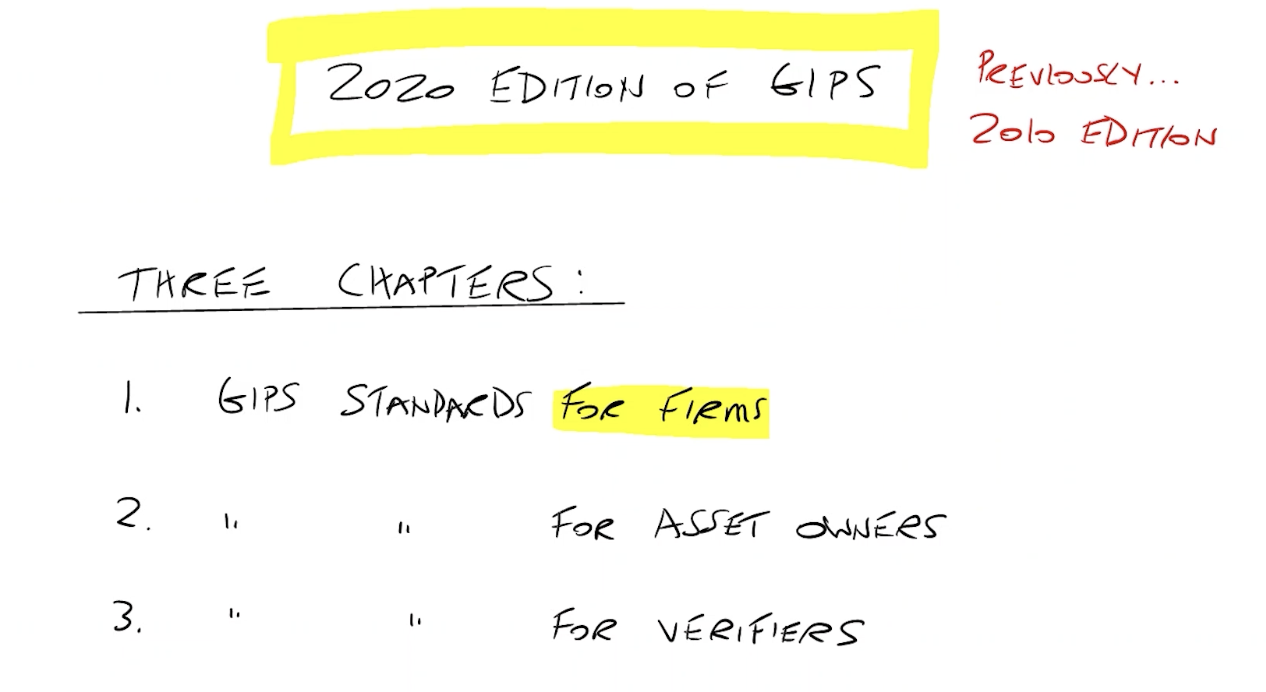 2020 EDITION OF GIPS
PREVIOUSLY...
2010 EDITION
THREE CHAPTERS:
1. GIPS STANDARDS FOR FIRMS
2. " " FOR ASSET OWNERS
3. " " FOR VERIFIERS